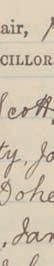 air,
CILLOR
Scott
ty, Ja
Dohe
, Jan